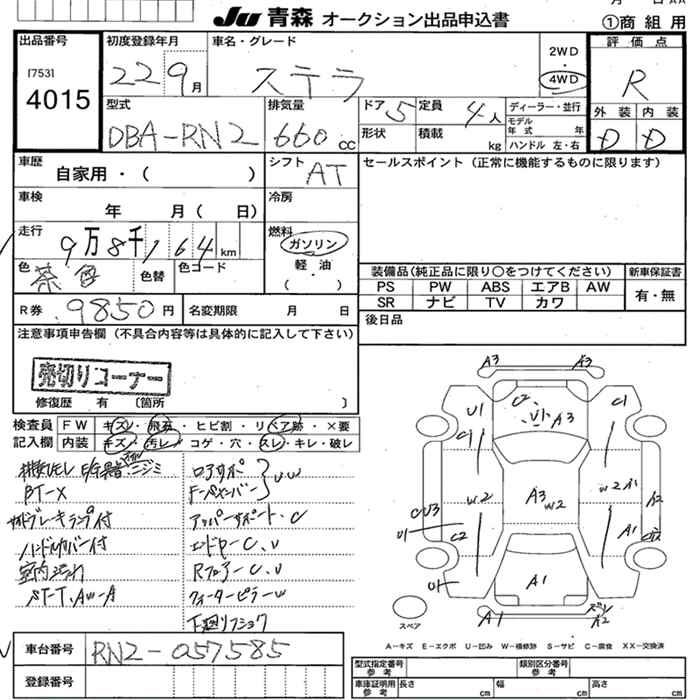 JU 青森 オークション出品申込書
①商 組 用
出品番号
17531
4015
初度登録年月
22 9月
車名・グレード
ステラ
2WD
4WD
評 価 点
R
外 装 内 装
D D
型式
DBA-RN2
排気量
660 cc
ドア 5
定員 4人
ディーラー・並行
形状
積載 kg
モデル年式 年
ハンドル 左・右
車歴
自家用・( )
シフト AT
セールスポイント(正常に機能するものに限ります)
車検
年 月( 日)
冷房
走行
9万8千164km
燃料
ガソリン
軽・油
・( )
色 茶色
色替
色コード
装備品(純正品に限り○をつけてください)
新車保証書
PS PW ABS エアB AW
SR ナビ TV カワ
有・無
R券 9850円
名変期限 月 日
後日品
注意事項申告欄(不具合内容等は具体的に記入して下さい)
売切りコーナー
修復歴 有 〔箇所 〕
検査員 FW キズ・飛石・ヒビ割・リペア跡・×要
記入欄 内装 キズ・汚レ・コゲ・穴・スレ・キレ・破レ
BT-X
ハンドルカバー付
ST-T、AW-A
ロアサポ
アッパーサポート、C
エンドロ-C、U
Rフロアー C、U
A3 A3
U1 C2 U1 A3 C1
C1
W2 A3 W2 W2 A1
CU3 A2
U1 C2 A1
U1 A1
A1 A2
スペア
A-キズ E-エクボ U-凹み W-補修跡 S-サビ C-腐食 XX-交換済
車台番号
RN2-057585
登録番号
型式指定番号 参考
類別区分番号 参考
車庫証明用 参考
長さ cm 幅 cm 高さ cm